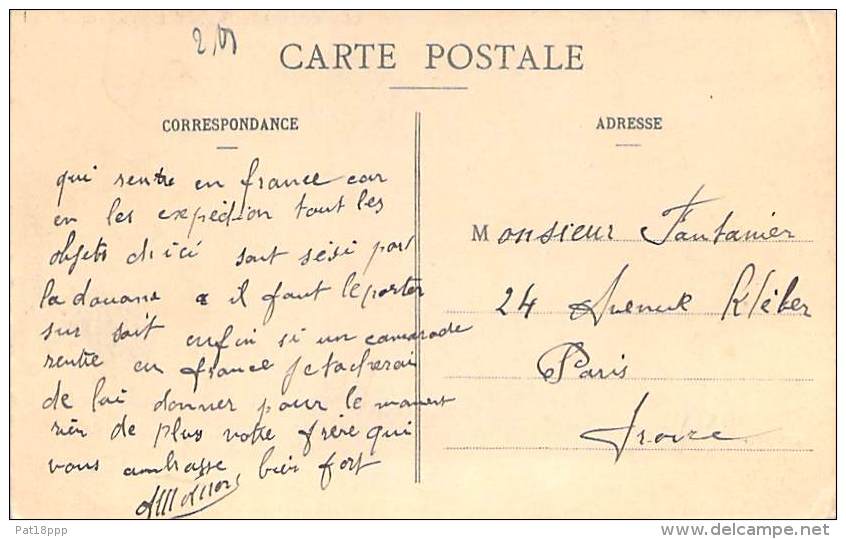 CARTE POSTALE
CORRESPONDANCE
ADRESSE
qui rentre en france car
en les expédion tout les
objets d'ici sont sési par
la douane il faut le porter
sur soit enfin si un camarade
rentre en france je tacherai
de lui donner pour le moment
rien de plus votre frère qui
vous embrasse bien fort
Monsieur Fantanier
24 Avenue Kléber
Paris
Pat18ppp
delcampe.net